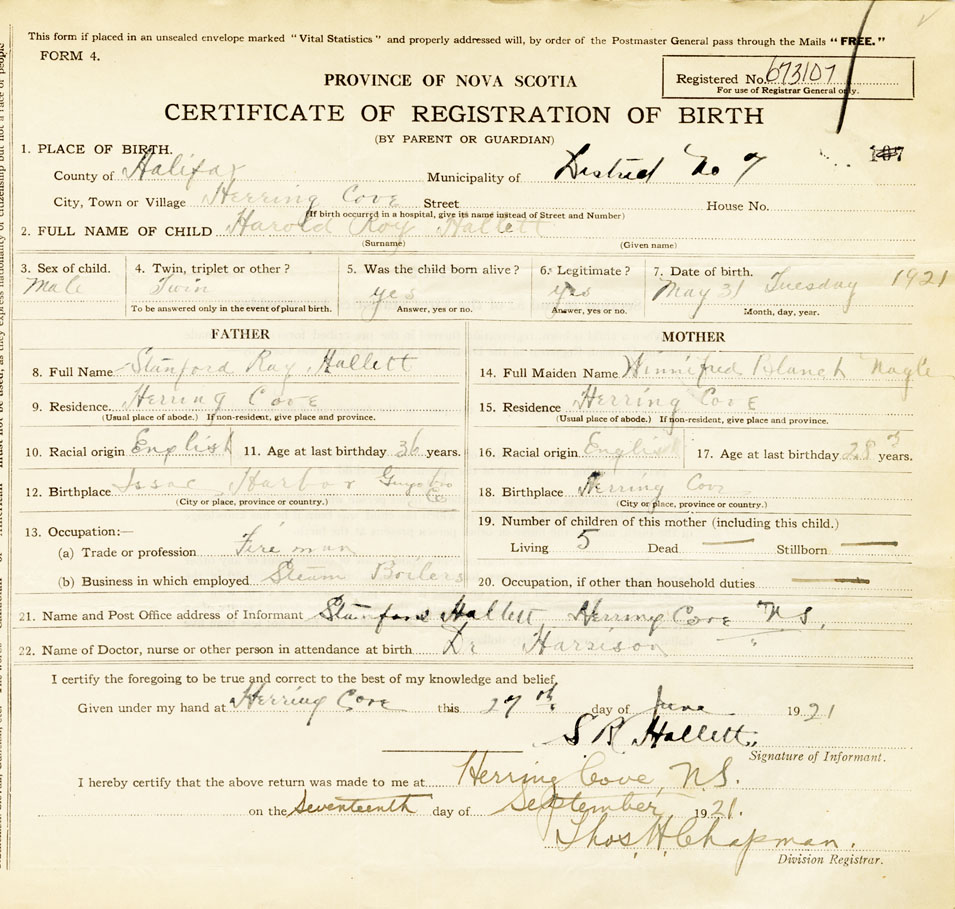 This form if placed in an unsealed envelope marked "Vital Statistics" and properly addressed will, by order of the Postmaster General pass through the Mails "FREE."
FORM 4.
PROVINCE OF NOVA SCOTIA
Registered No. 673107
For use of Registrar General only.
CERTIFICATE OF REGISTRATION OF BIRTH
(BY PARENT OR GUARDIAN)
1. PLACE OF BIRTH.
County of Halifax Municipality of District No 7
City, Town or Village Herring Cove Street House No.
(If birth occurred in a hospital, give its name instead of Street and Number)
2. FULL NAME OF CHILD Harold Roy Hallett
(Surname) (Given name)
3. Sex of child. 4. Twin, triplet or other? 5. Was the child born alive? 6. Legitimate? 7. Date of birth.
Male Twin yes yes May 31 Tuesday 1921
To be answered only in the event of plural birth. Answer, yes or no. Answer, yes or no. Month, day, year.
FATHER
8. Full Name Stanford Ray Hallett
9. Residence. Herring Cove
(Usual place of abode.) If non-resident, give place and province.
10. Racial origin English 11. Age at last birthday 36 years.
12. Birthplace Issac Harbor Guysboro Co
(City or place, province or country.)
13. Occupation:—
(a) Trade or profession Fireman
(b) Business in which employed Steam Boilers
MOTHER
14. Full Maiden Name Winnifred Blanch Nagle
15. Residence Herring Cove
(Usual place of abode.) If non-resident, give place and province.
16. Racial origin English 17. Age at last birthday 28 years.
18. Birthplace Herring Cove
(City or place, province or country.)
19. Number of children of this mother (including this child.)
Living 5 Dead — Stillborn —
20. Occupation, if other than household duties —
21. Name and Post Office address of Informant Stanford Hallett Herring Cove N S.
22. Name of Doctor, nurse or other person in attendance at birth Dr Harrison "
I certify the foregoing to be true and correct to the best of my knowledge and belief.
Given under my hand at Herring Cove this 27th day of June 1921
S R Hallett
Signature of Informant.
I hereby certify that the above return was made to me at Herring Cove, N.S.
on the Seventeenth day of September 1921.
Thos. H. Chapman.
Division Registrar.